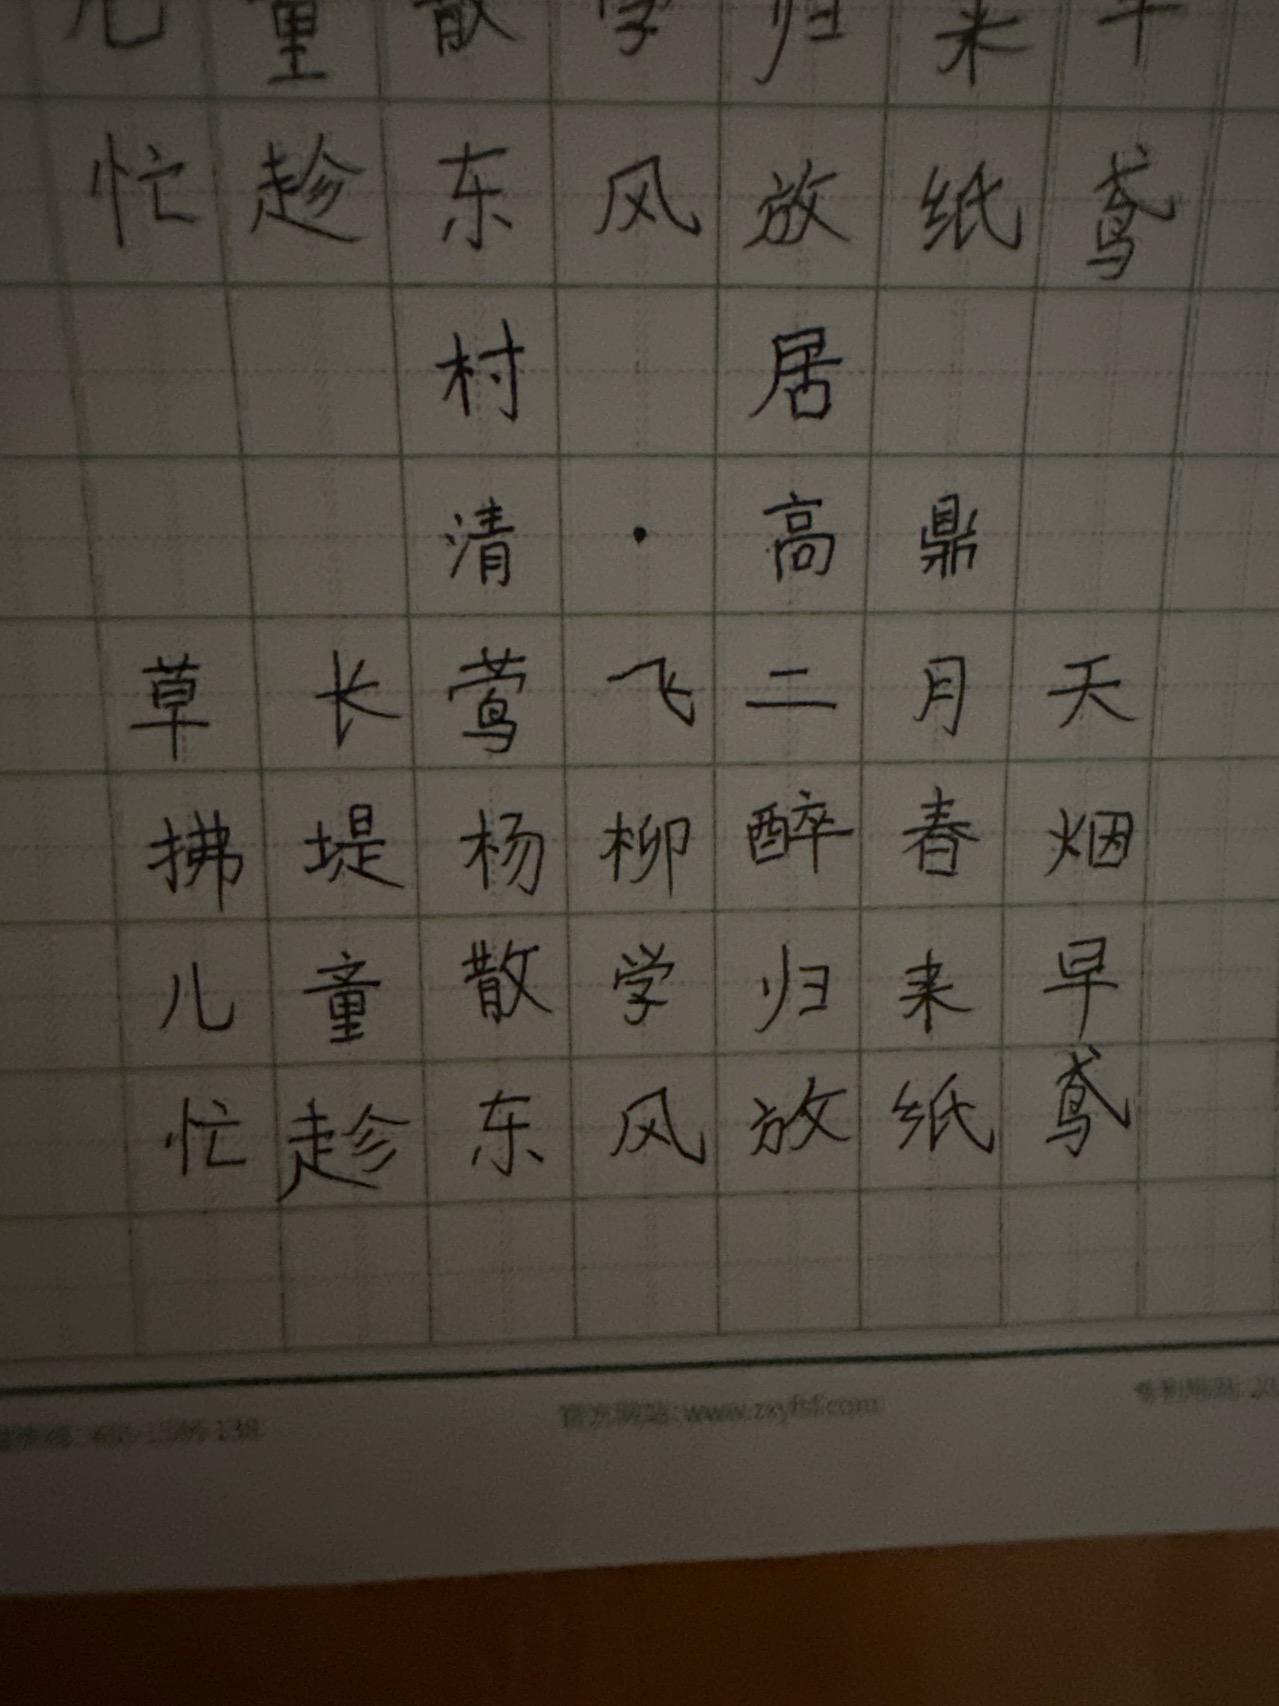 儿童散学归来早
忙趁东风放纸鸢
村居
清·高鼎
草长莺飞二月天
拂堤杨柳醉春烟
儿童散学归来早
忙趁东风放纸鸢
官方网站:www.zxyfsf.com